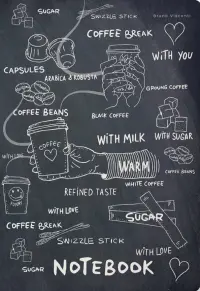 SUGAR
SWIZZLE STICK
COFFEE BREAK
WITH YOU
CAPSULES
ARABICA & ROBUSTA
GROUND COFFEE
COFFEE BEANS
BLACK COFFEE
WITH MILK
WITH SUGAR
COFFEE
WARM
COFFEE BEANS
WHITE COFFEE
REFINED TASTE
WITH LOVE
SUGAR
COFFEE BREAK
SWIZZLE STICK
WITH LOVE
SUGAR
NOTEBOOK